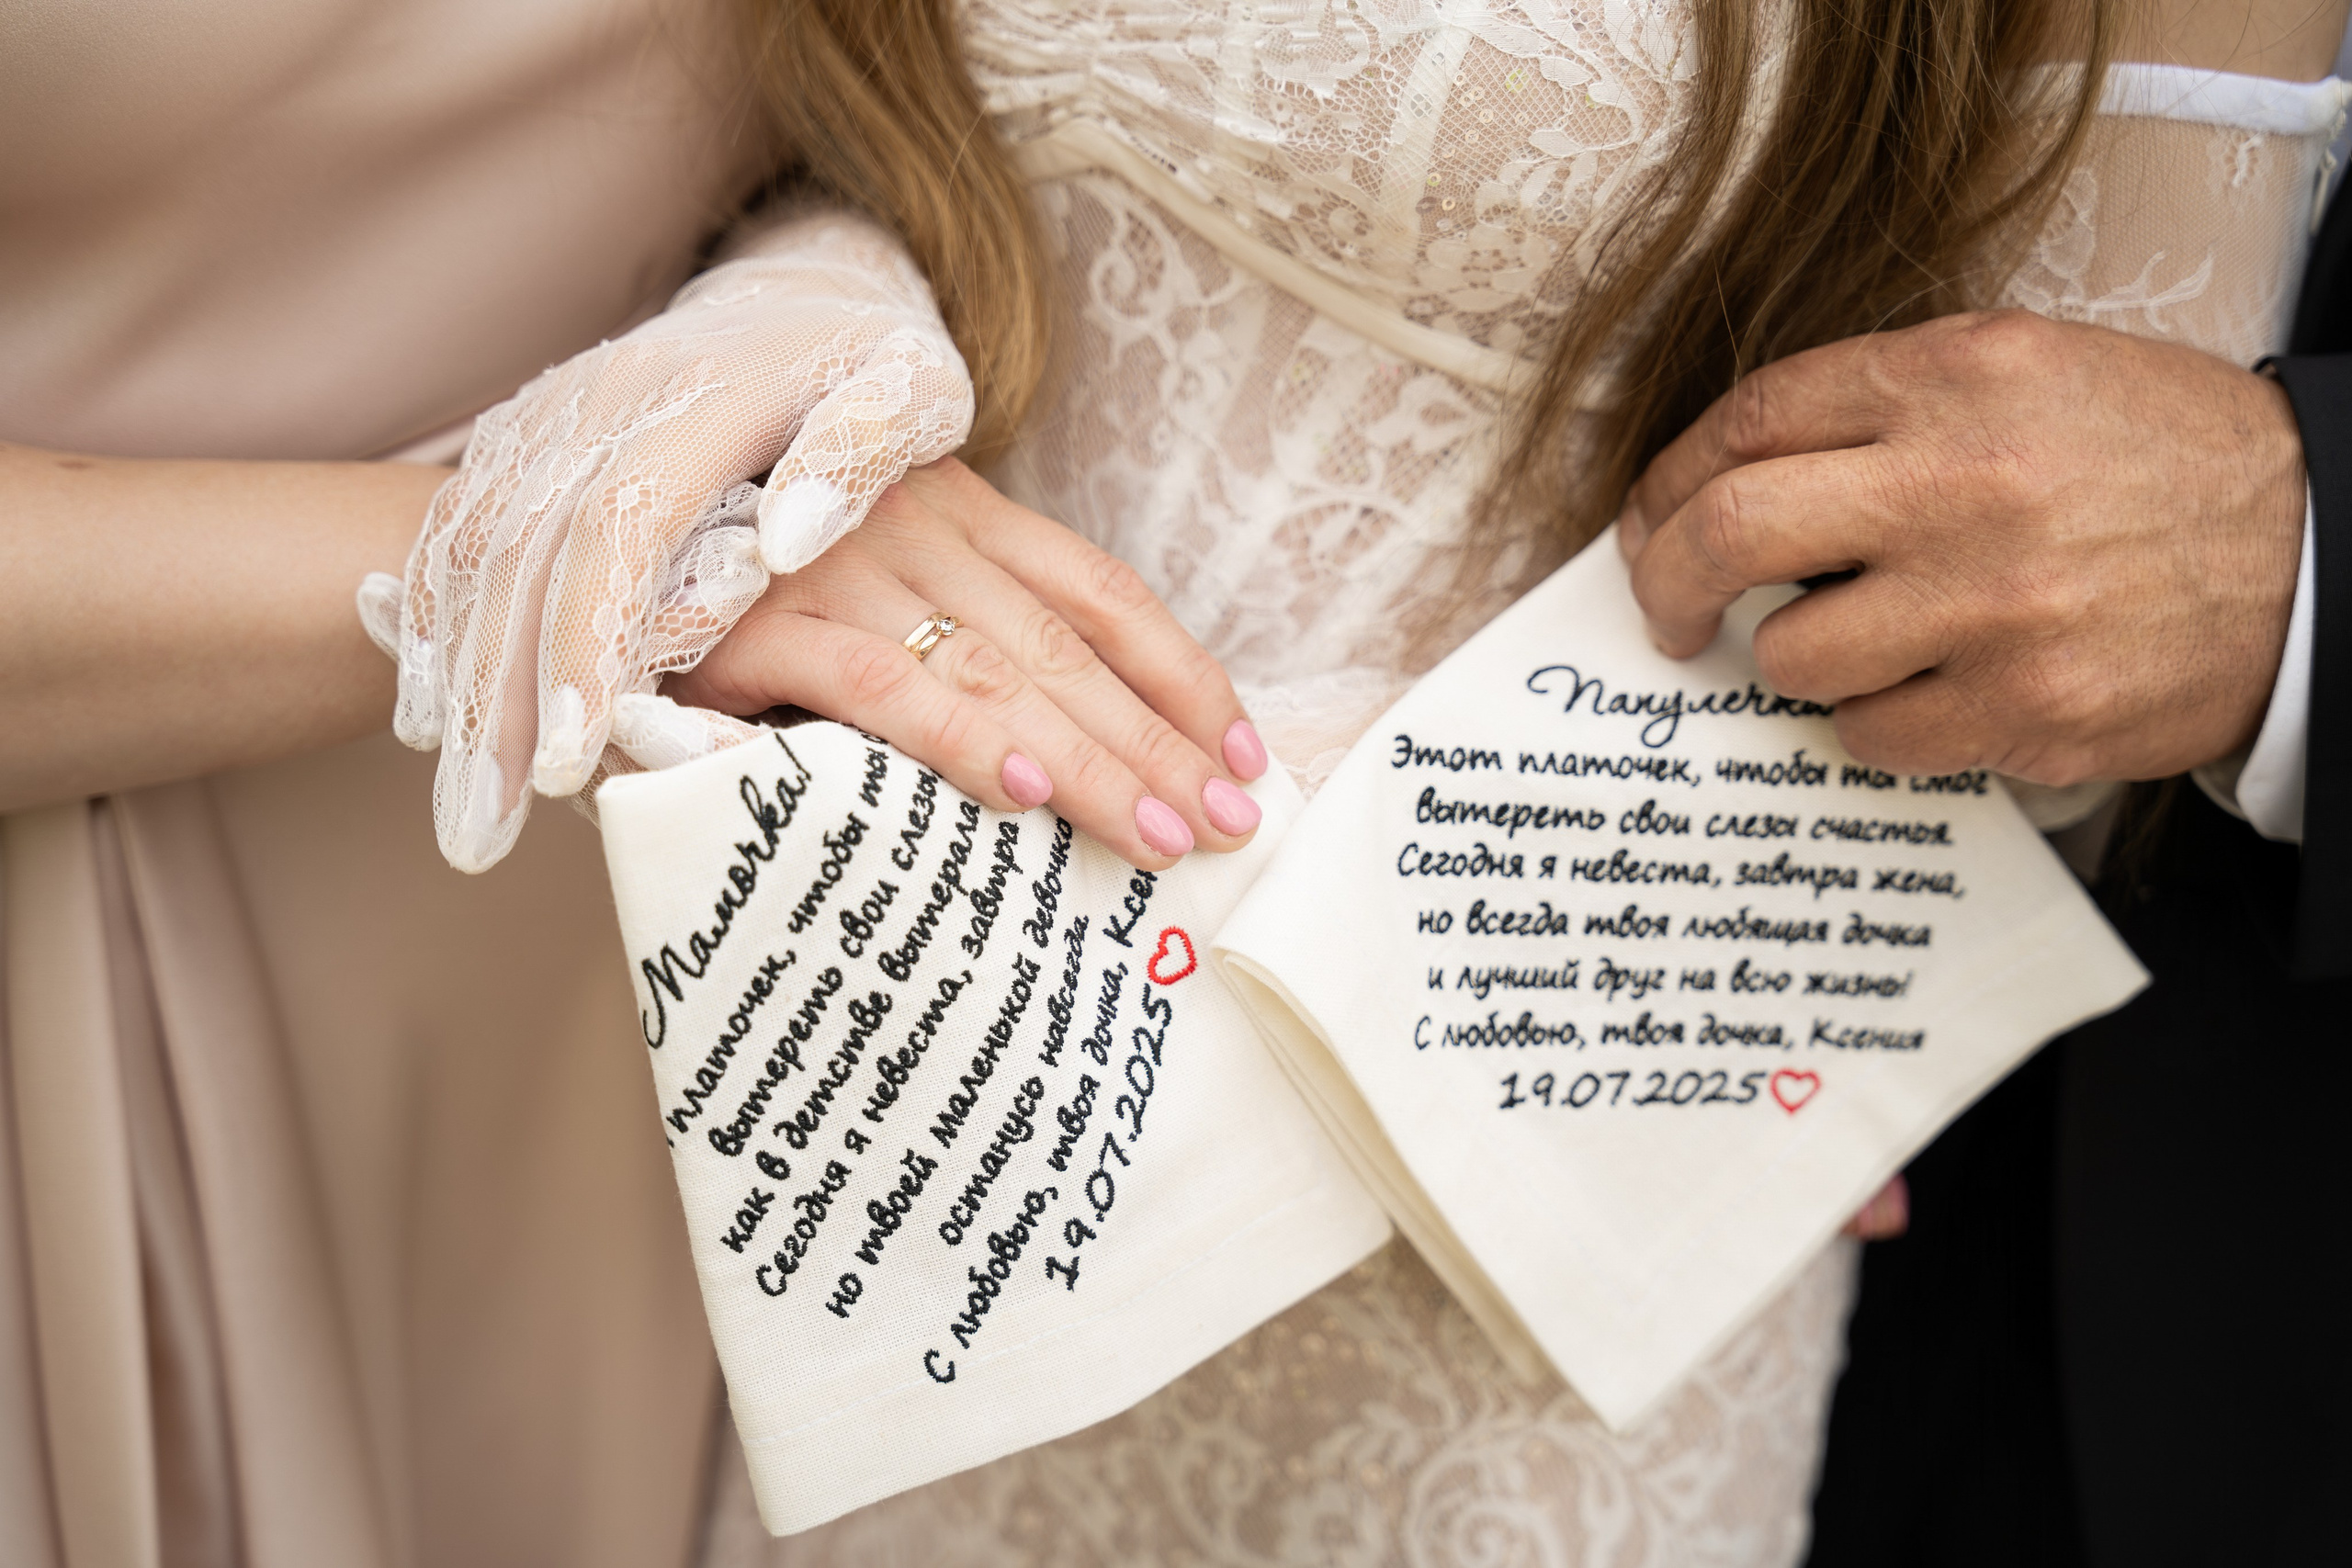 Мамочка!
платочек, чтобы ты
вытереть свои слезы,
как в детстве вытирала
Сегодня я невеста, завтра
но твоей маленькой девочкой
останусь навсегда
С любовью, твоя дочка,
19.07.2025
Папулечка
Этот платочек, чтобы ты смог
вытереть свои слезы счастья.
Сегодня я невеста, завтра жена,
но всегда твоя любящая дочка
и лучший друг на всю жизнь!
С любовью, твоя дочка, Ксения
19.07.2025